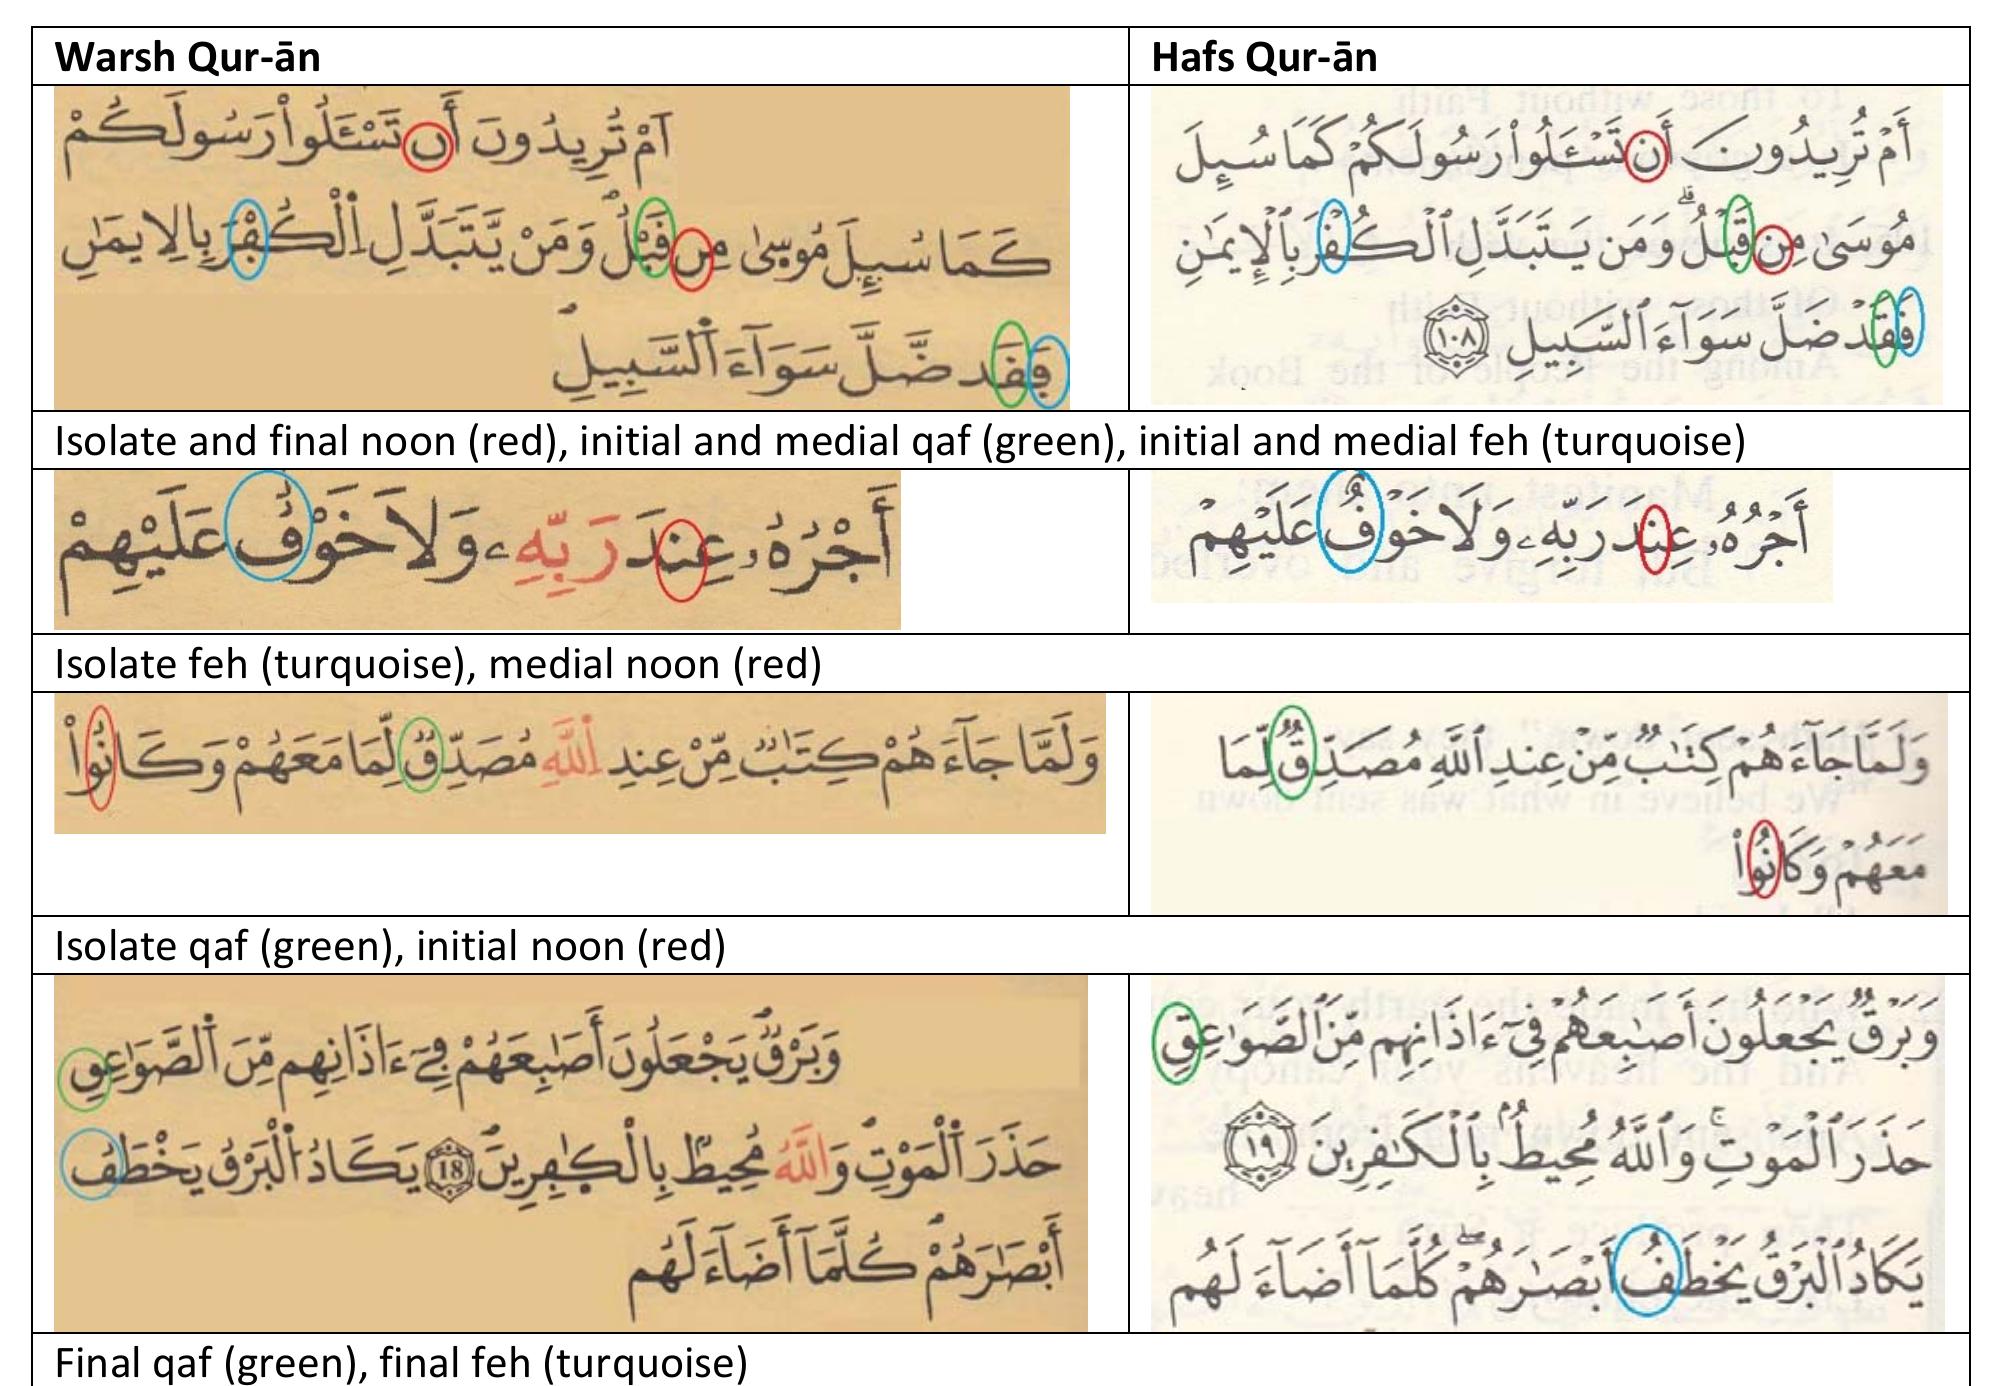 Warsh Qur-ān
Hafs Qur-ān
اَمْ تُرِيدُونَ أَن تَسْـَٔلُواْ رَسُولَكُمْ
كَمَا سُئِلَ مُوسۭىٰ مِن قَبْلُ وَمَنْ يَّتَبَدَّلِ اِ۬لْكُفْرَ بِالِايمَٰنِ
فَقَد ضَّلَّ سَوَآءَ اَ۬لسَّبِيلِ
أَمْ تُرِيدُونَ أَن تَسْـَٔلُوا۟ رَسُولَكُمْ كَمَا سُئِلَ
مُوسَىٰ مِن قَبْلُ ۗ وَمَن يَتَبَدَّلِ ٱلْكُفْرَ بِٱلْإِيمَٰنِ
فَقَدْ ضَلَّ سَوَآءَ ٱلسَّبِيلِ ١٠٨
Isolate and final noon (red), initial and medial qaf (green), initial and medial feh (turquoise)
أَجْرُهُۥ عِندَ رَبِّهِۦ وَلَا خَوْفٌ عَلَيْهِمْ
أَجْرُهُۥ عِندَ رَبِّهِۦ وَلَا خَوْفٌ عَلَيْهِمْ
Isolate feh (turquoise), medial noon (red)
وَلَمَّا جَآءَهُمْ كِتَٰبٌ مِّنْ عِندِ اِ۬للَّهِ مُصَدِّقٌ لِّمَا مَعَهُمْ وَكَانُواْ
وَلَمَّا جَآءَهُمْ كِتَٰبٌ مِّنْ عِندِ ٱللَّهِ مُصَدِّقٌ لِّمَا
مَعَهُمْ وَكَانُوا۟
Isolate qaf (green), initial noon (red)
وَبَرْقٌ يَجْعَلُونَ أَصَٰبِعَهُمْ فِےٓ ءَاذَانِهِم مِّنَ اَ۬لصَّوَٰعِقِ
حَذَرَ اَ۬لْمَوْتِ وَاللَّهُ مُحِيطٌ بِالْكٰ۪فِرِينَ 18 يَكَادُ اُ۬لْبَرْقُ يَخْطَفُ
أَبْصَٰرَهُمْ كُلَّمَآ أَضَآءَ لَهُم
وَبَرْقٌ يَجْعَلُونَ أَصَٰبِعَهُمْ فِىٓ ءَاذَانِهِم مِّنَ ٱلصَّوَٰعِقِ
حَذَرَ ٱلْمَوْتِ ۚ وَٱللَّهُ مُحِيطٌۢ بِٱلْكَٰفِرِينَ ١٩
يَكَادُ ٱلْبَرْقُ يَخْطَفُ أَبْصَٰرَهُمْ ۖ كُلَّمَآ أَضَآءَ لَهُم
Final qaf (green), final feh (turquoise)